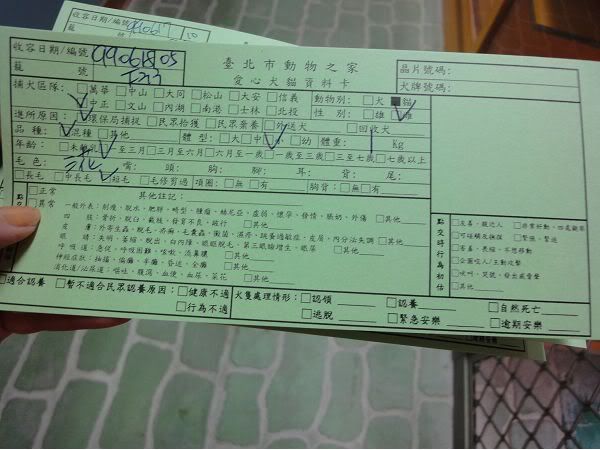 收容日期/編號 990617 10
收容日期/編號 99061805
籠 號 F23
臺北市動物之家
愛心犬貓資料卡
晶片號碼：
犬牌號碼：
捕犬區隊：□萬華□中山□大同□松山□大安□信義 動物別：□犬■貓
□中正□文山□內湖□南港□士林□北投 性 別：□雄□雌
進所原因：□環保局捕捉□民眾拾獲□民眾棄養□外送犬 □回收犬
品種：□混種□其他 體型：□大□中□小□幼 體重： Kg
年齡：□未離乳□ 至三月□三月至六月□六月至一歲□一歲至三歲□三歲至七歲□七歲以上
毛色：三花 嘴： 頭： 胸： 腳： 耳： 背： 尾：
□長毛□中長毛□短毛□毛修剪過 項圈：□無□有 胸背：□無□有
點交
□正常
□異常
其他註記：
一般外表：削瘦、脫水、肥胖、畸型、腫瘤、赫尼亞、虛弱、懷孕、發情、脹奶、外傷 □其他
四 肢：骨折、脫臼、截肢、發育不良、跛行 □其他
皮 膚：外寄生蟲、脫毛、疥癬、毛囊蟲、黴菌、濕疹、跳蚤過敏症、皮屑、內分泌失調 □其他
眼 睛：失明、萎縮、脫出、白內障、眼瞼脫毛、第三眼瞼增生、眼屎 □其他
呼吸道：急促、呼吸困難、咳嗽、流鼻膿 □其他
神經症狀：抽搐、偏癱、半癱、昏迷、全癱 □其他
消化道/泌尿道：嘔吐、腹瀉、血便、血尿、菜花 □其他
點交時行為初估
□友善、親近人 □非常好動、四處觀華
□可碰觸及撫摸 □緊張、緊迫
□害羞、畏縮、不想移動
□企圖咬人/主動攻擊
□吠叫、哭號、發出威脅聲
□其他
□適合認養 □暫不適合民眾認養原因：□健康不適
□行為不適
犬隻處理情形：□認領 □認養 □自然死亡
□逃脫 □緊急安樂 □逾期安樂